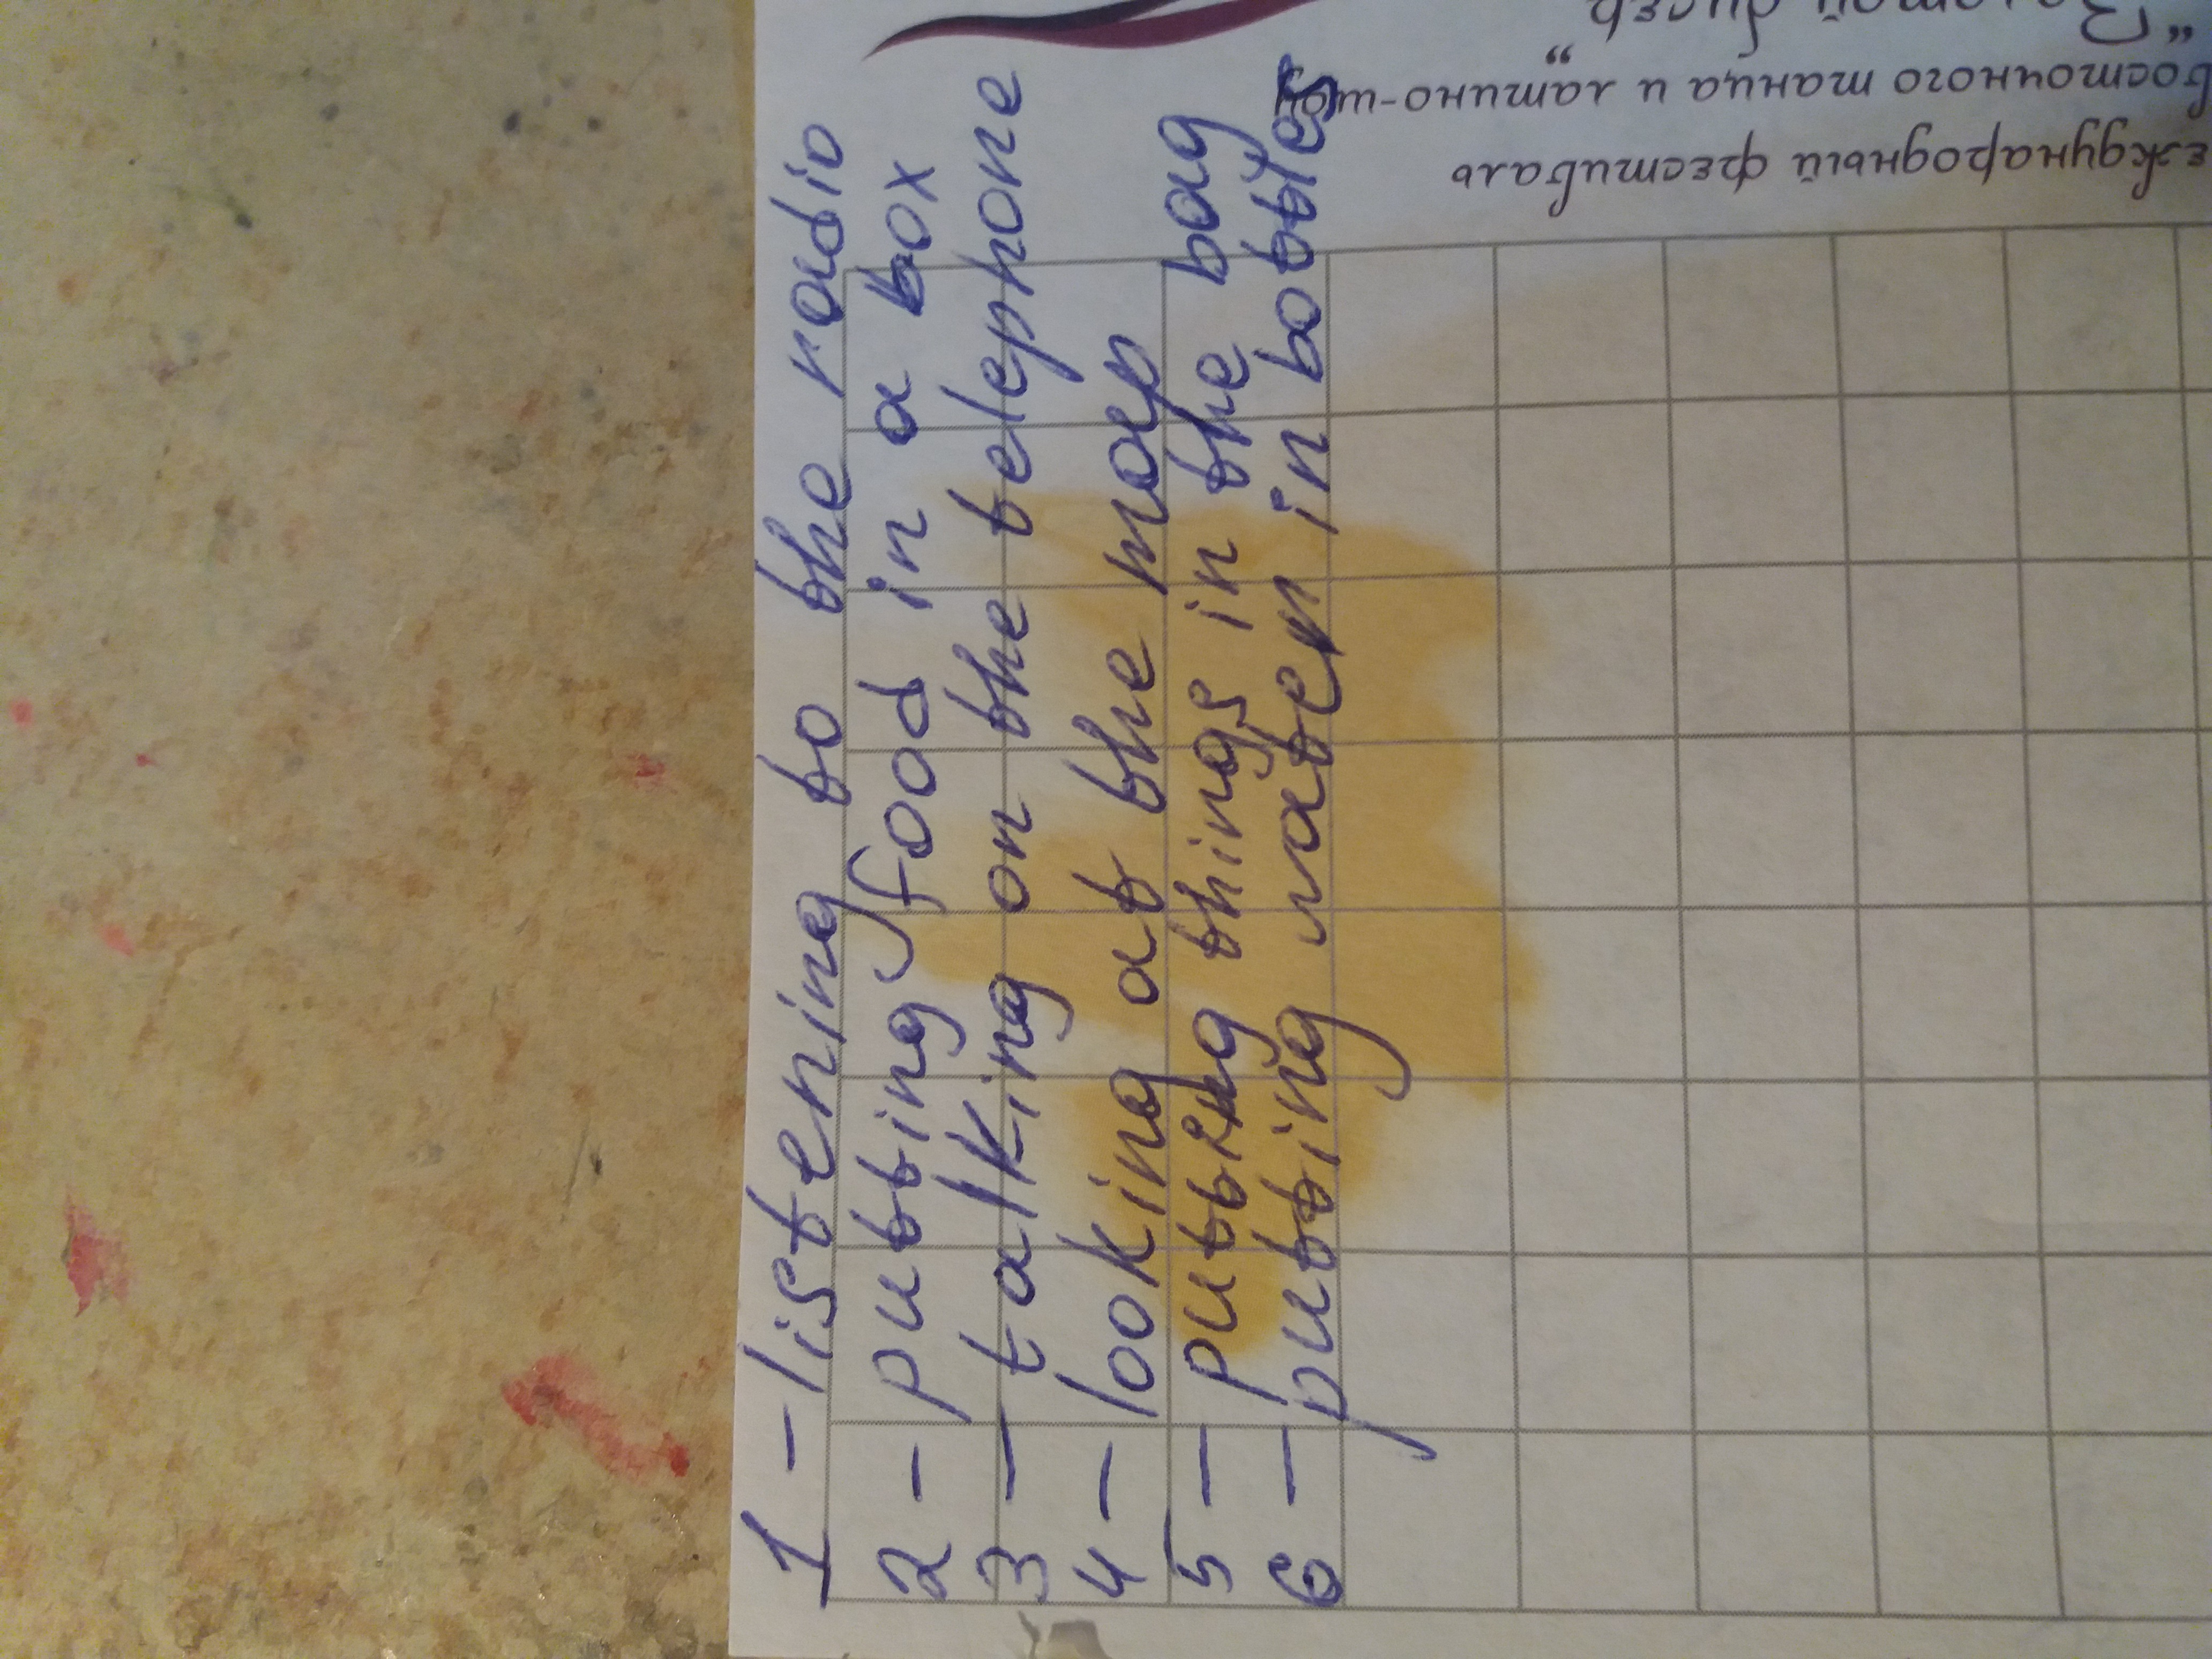 1 - listening to the radio
2 - putting food in a box
3 - talking on the telephone
4 - looking at the map
5 - putting things in the bag
6 - putting water in botles
еждународный фестиваль
восточного танца и латино-шоу
"Золотой бисер